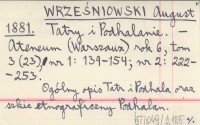 WRZEŚNIOWSKI August
1881.
Tatry i Podhalanie. –
Ateneum (Warszawa) rok 6, tom
3 (23), nr 1: 139-154; nr 2: 222-
-253.
Ogólny opis Tatr i Podhala oraz
szkic etnograficzny Podhalan.